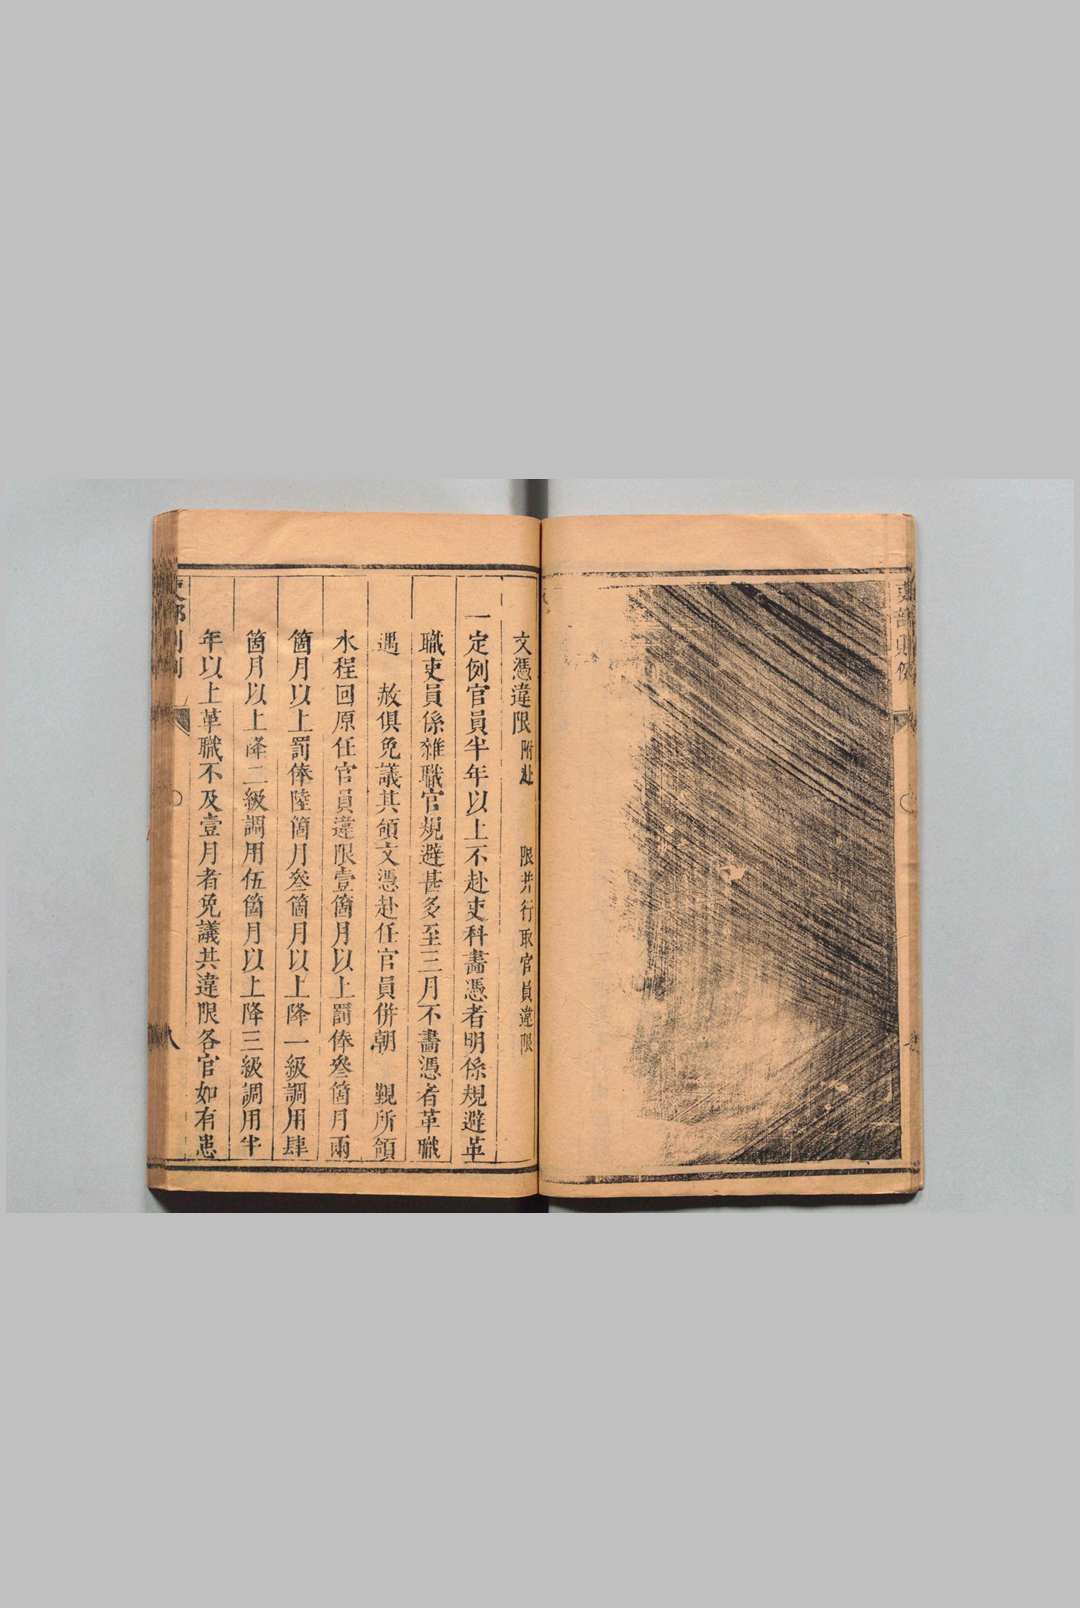 吏部則例
文憑違限附赴　限并行取官員違限
一定例官員半年以上不赴吏科畵憑者明係規避革
職吏員係雜職官規避甚多至三月不畵憑者革職
遇　赦俱免議其領文憑赴任官員併朝　覲所領
水程回原任官員違限壹箇月以上罰俸叄箇月兩
箇月以上罰俸陸箇月叄箇月以上降一級調用肆
箇月以上降二級調用伍箇月以上降三級調用半
年以上革職不及壹月者免議其違限各官如有患
八